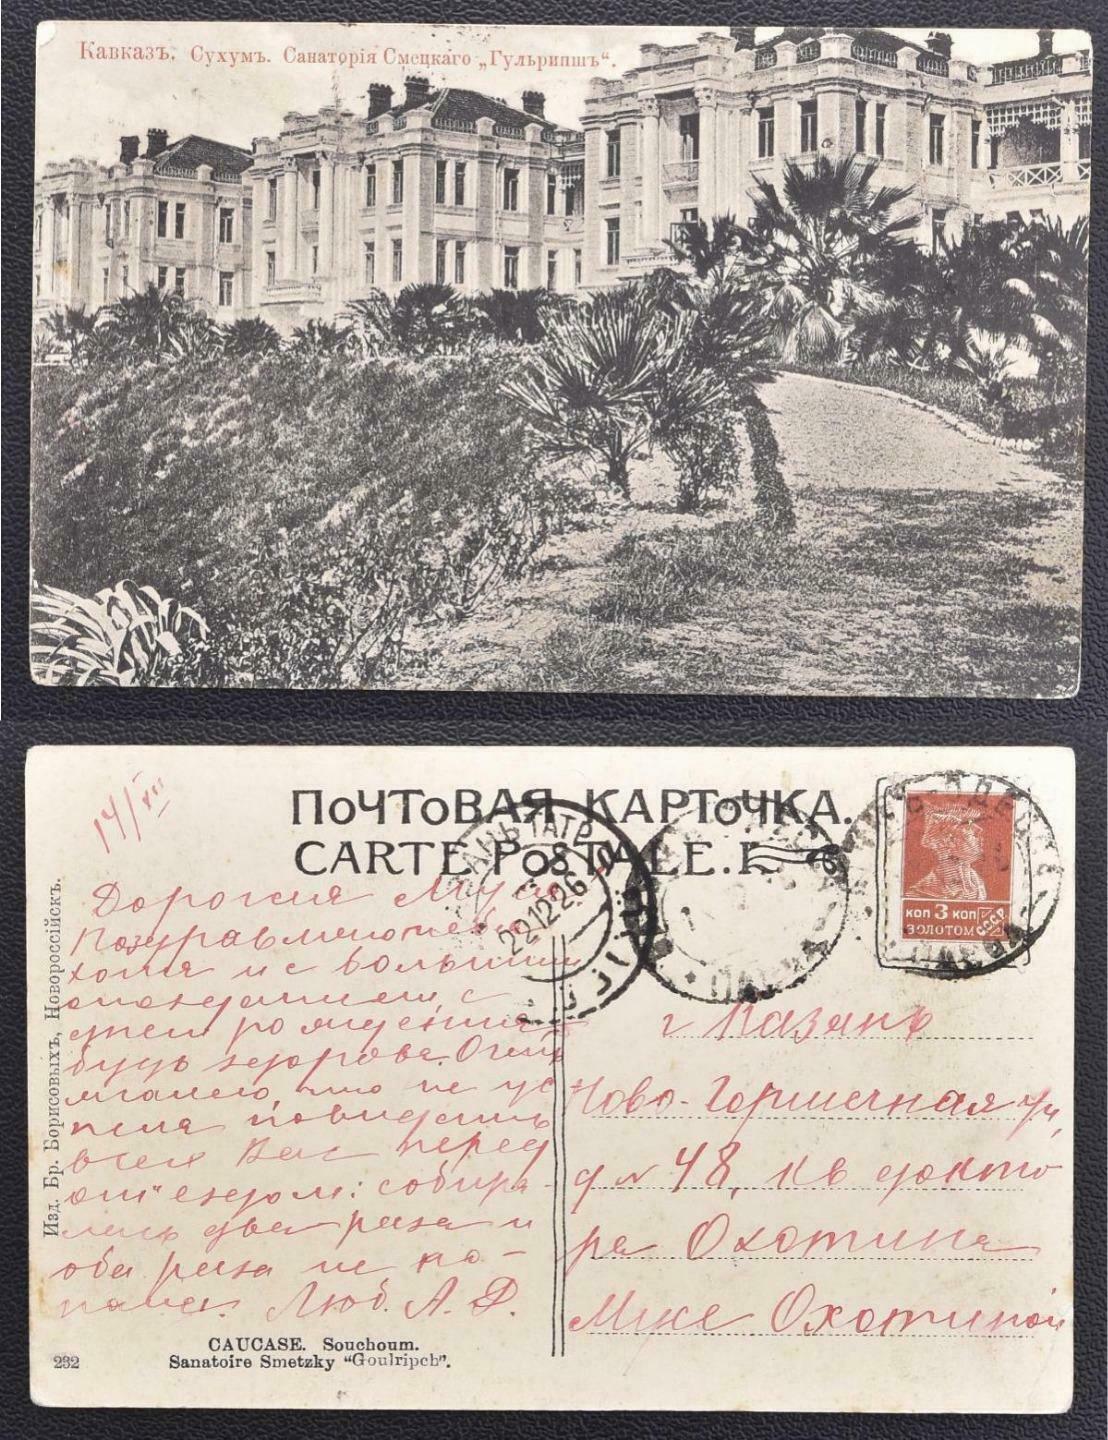 Кавказъ. Сухумъ. Санаторія Смецкаго „Гульрипшъ“.
14/XII
ПоЧТоВАЯ КАРТоЧКА.
CARTE PoSTALE.
Изд. Бр. Борисовыхъ, Новороссійскъ.
КОП 3 КОП
ЗОЛОТОМ
СССР
КАЗАНЬ ТАТР
22.12.26
Дорогая Муся
Поздравляю тебя
хотя и с большим
опозданием, с
днем рождения
будь здорова. Очень
жалею, что не ус
пела повидать
всех Вас перед
от"ездом: собира-
лась два раза и
оба раза не по-
пала. Люб. А. Д.
г. Казань
Ново-Горшечная ул,
д N 48, кв докто
ра Охотина
Мусе Охотиной
CAUCASE. Souchoum.
Sanatoire Smetzky "Goulripch".
232